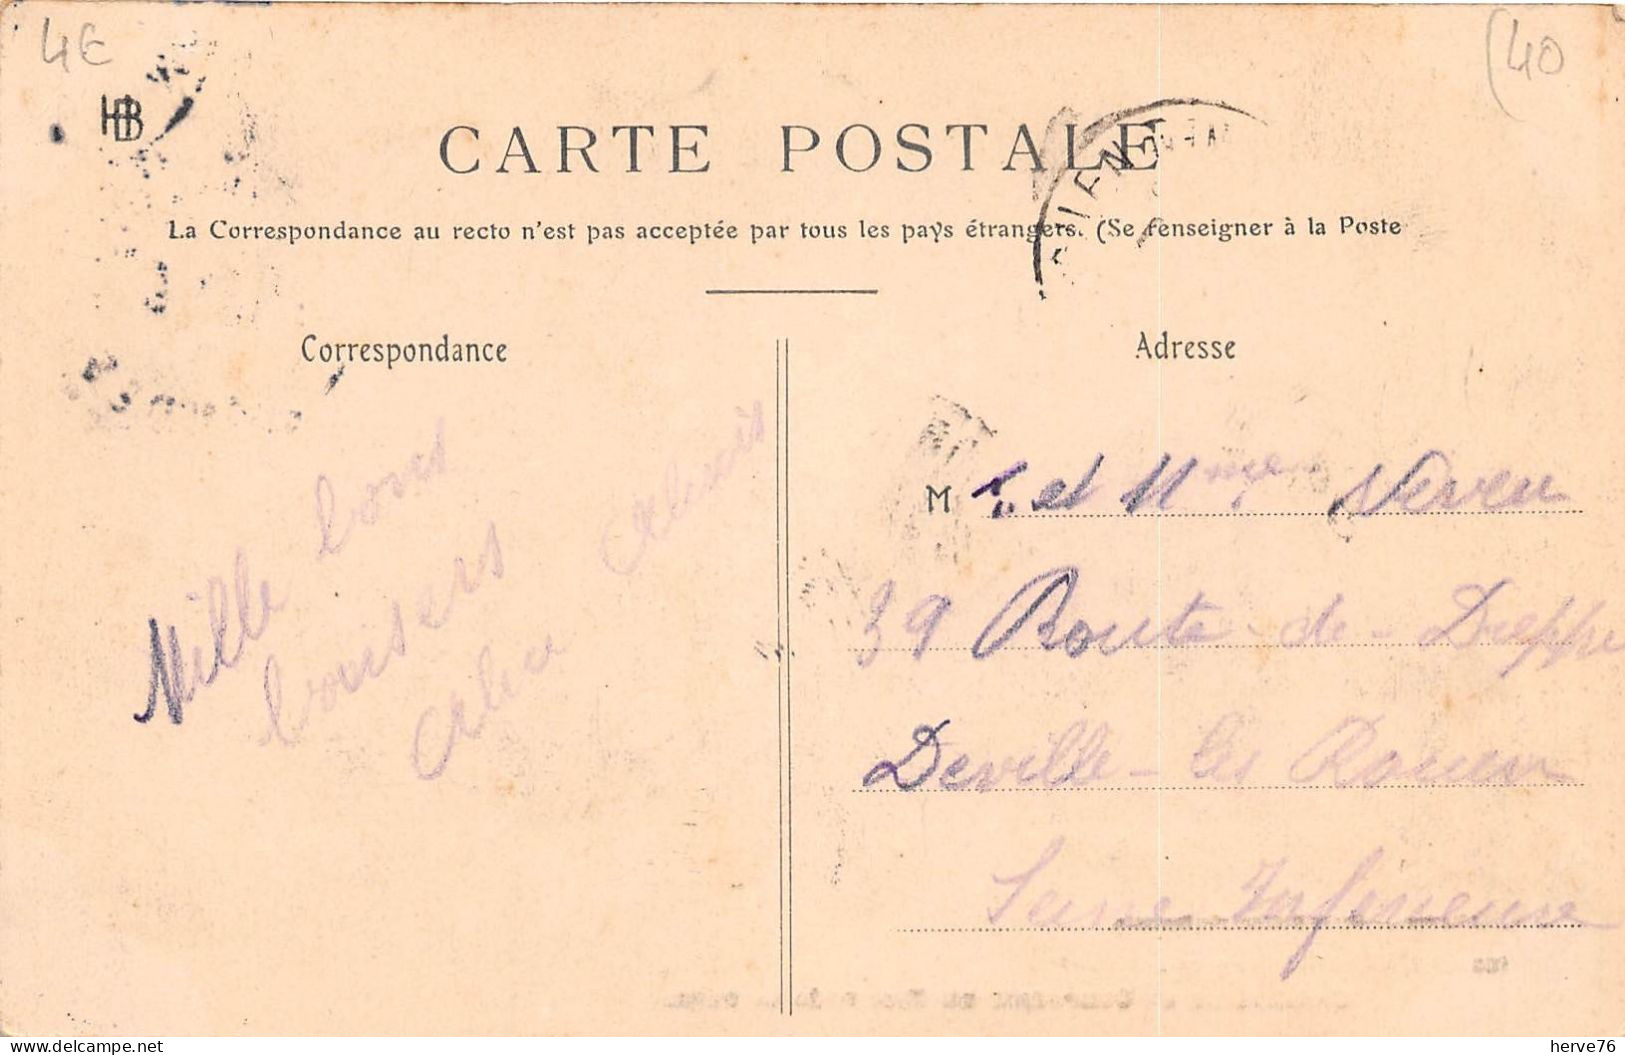 4€
(40
HB
CARTE POSTALE
La Correspondance au recto n'est pas acceptée par tous les pays étrangers. (Se renseigner à la Poste
Correspondance
Mille bons
baisers Alexis
Adresse
M r. et Mme Neveu
39 Route-de-Dieppe
Deville-les Rouen
Seine Inférieure
delcampe.net
herve76